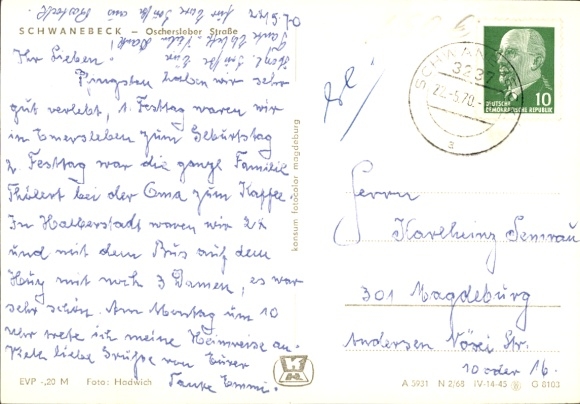 SCHWANEBECK - Oschersleber Straße
22/5.70
Ihr Lieben!
Pfingsten haben wir sehr
gut verlebt, 1. Festtag waren wir
in Emersleben zum Geburtstag
2. Festtag war die ganze Familie
Thölert bei der Oma zum Kaffee.
In Halberstadt waren wir 2x
und mit dem Bus auf dem
Huy mit noch 3 Damen, es war
sehr schön. Am Montag um 10
Uhr trete ich meine Heimreise an.
Viele liebe Grüße von Eurer
Tante Emmi.
für Eure Grüße aus Rostock.
Vielen Dank!
EVP -,20 M Foto: Hadwich
konsum fotocolor magdeburg
A 3931 N 2/68 IV-14-45 G 0103
SCHWANEBECK
3237
22.-5.70
a
10
DEUTSCHE
DEMOKRATISCHE REPUBLIK
Herrn
Karlheinz Semrau
301 Magdeburg
Andersen Nexö Str.
10 oder 16.